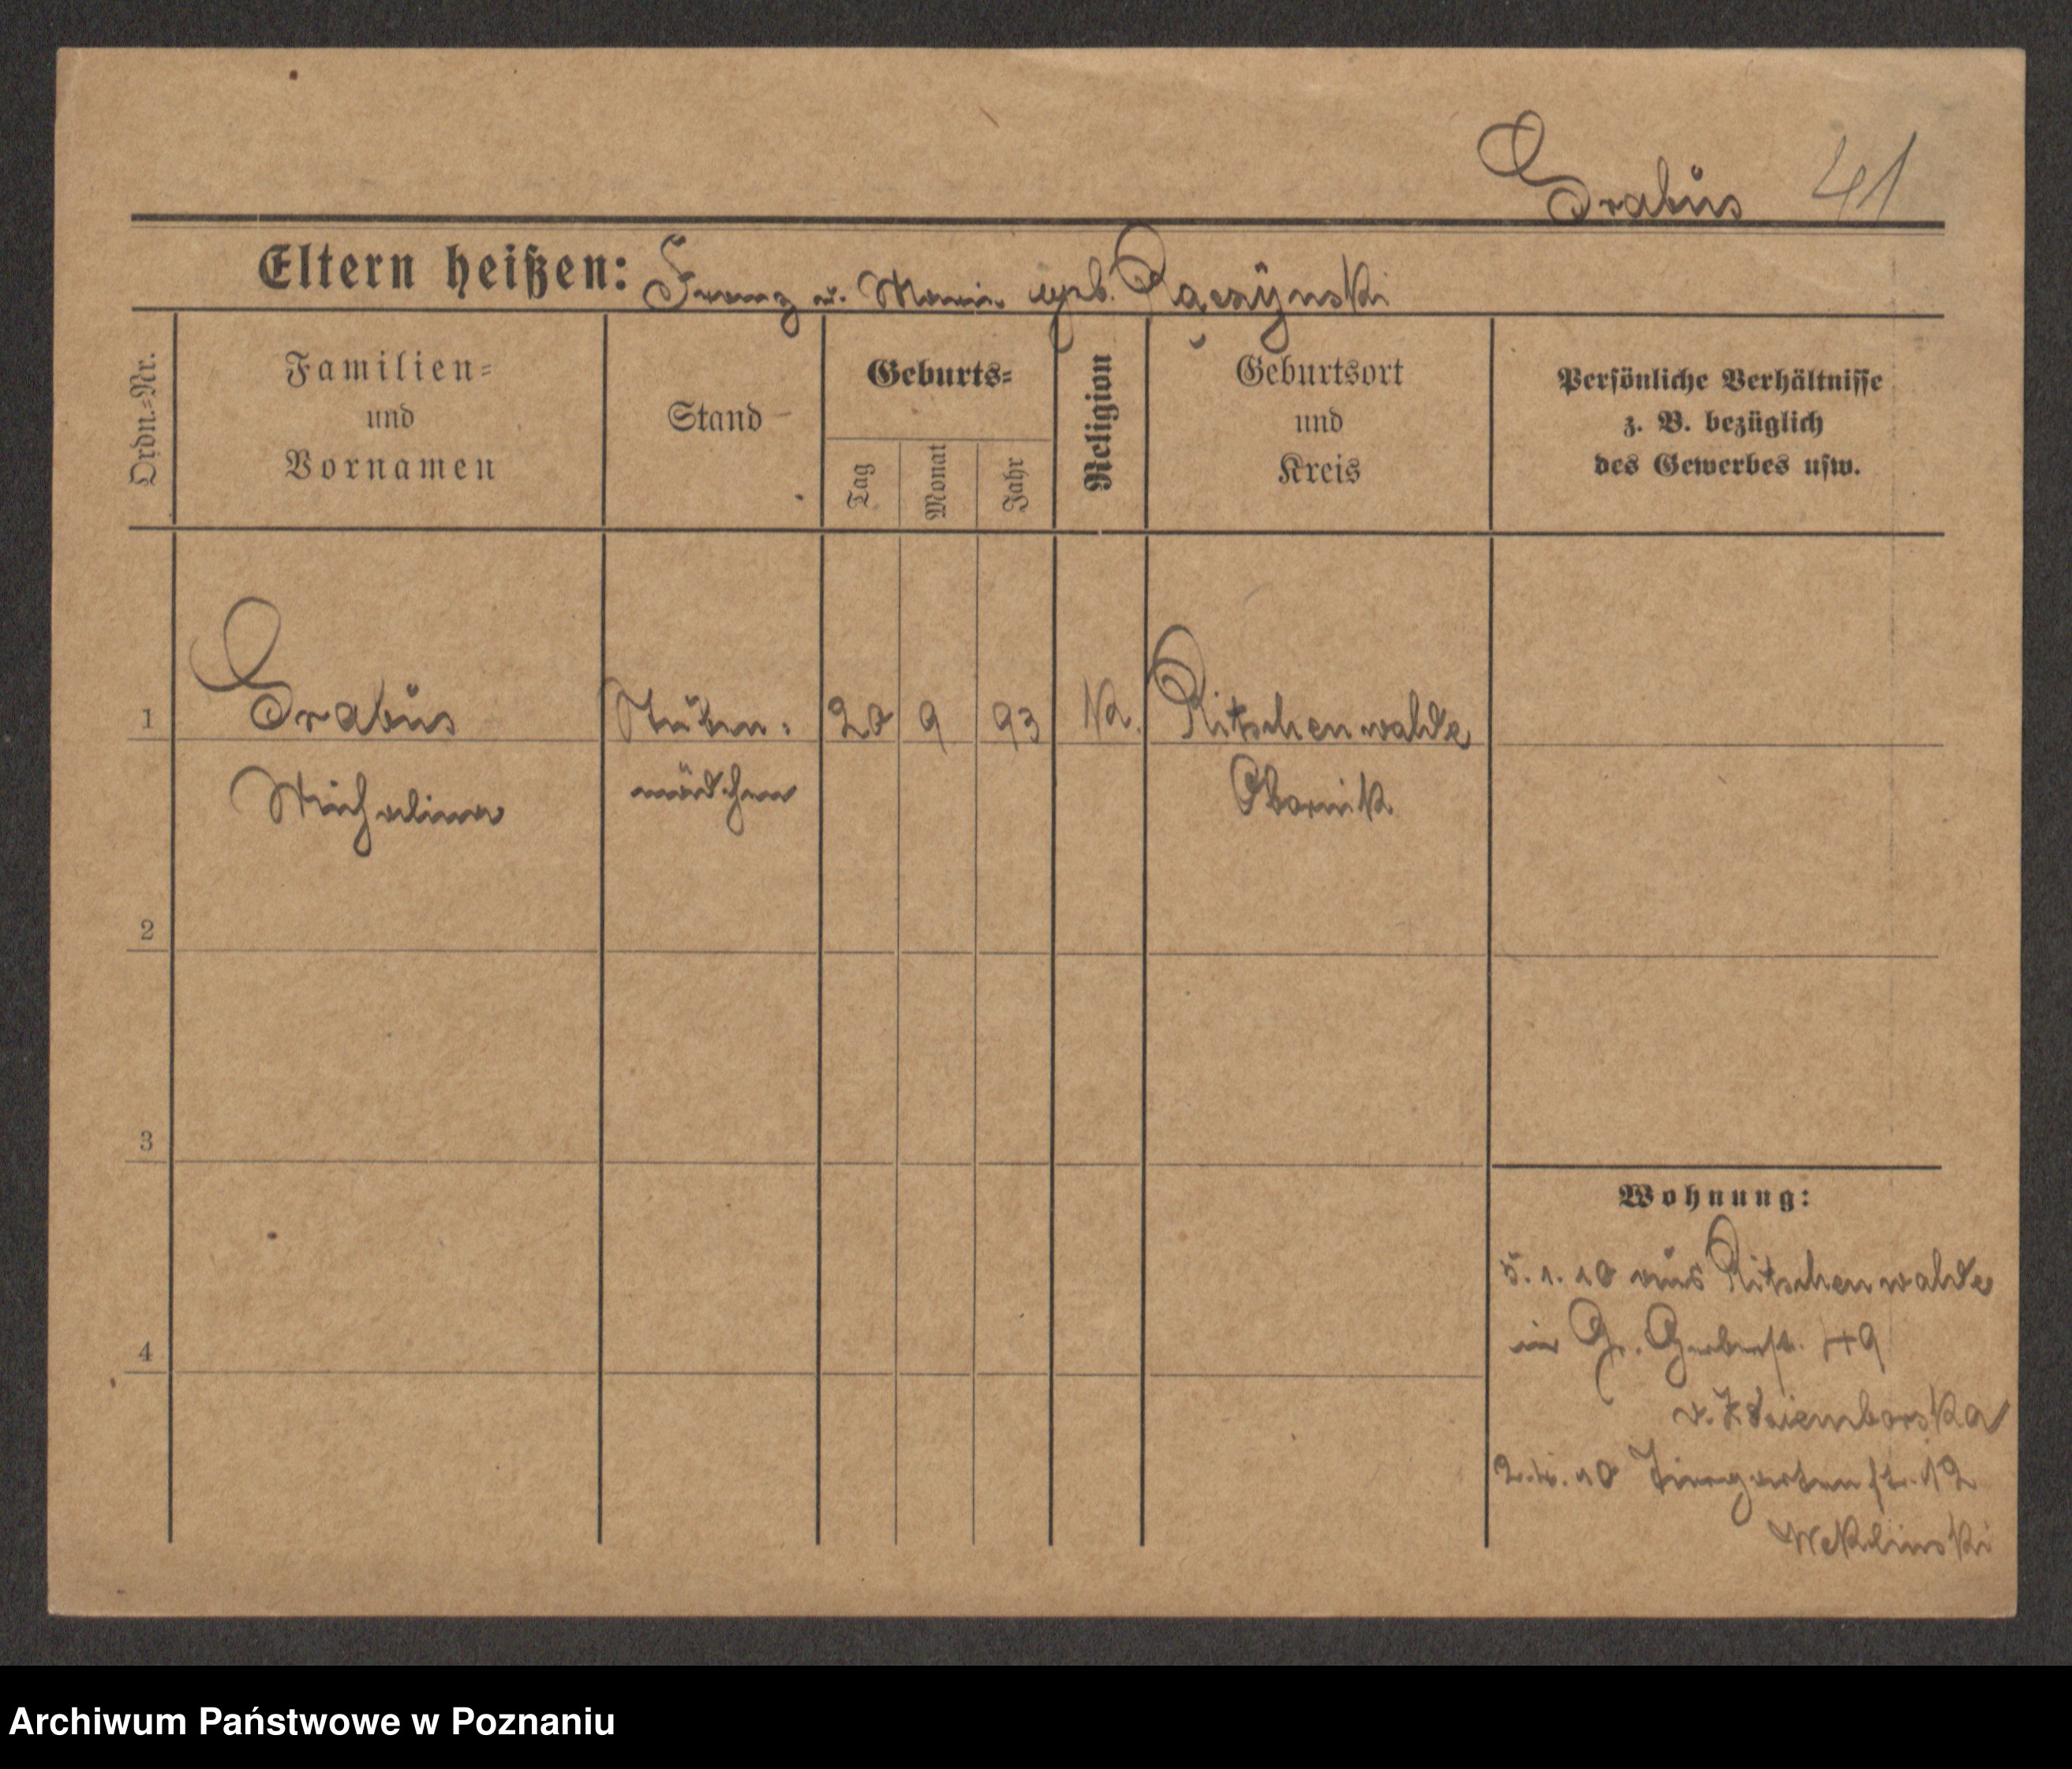 Grabus 41
Eltern heißen: Franz u. Marie geb. Rączynski
Ordn.=Nr.
Familien=
und
Vornamen
Stand
Geburts=
Tag
Monat
Jahr
Religion
Geburtsort
und
Kreis
Persönliche Verhältnisse
z. B. bezüglich
des Gewerbes usw.
1 Grabus Stuben= 20 9 93 Ka. Ritschenwalde
Michalina mädchen Obornik
2
3
4
Wohnung:
5. 1. 10 aus Ritschenwalde
in Gr. Gerberst. 49
v.
10 Tiergartenstr. 12
Weklinski
Archiwum Państwowe w Poznaniu